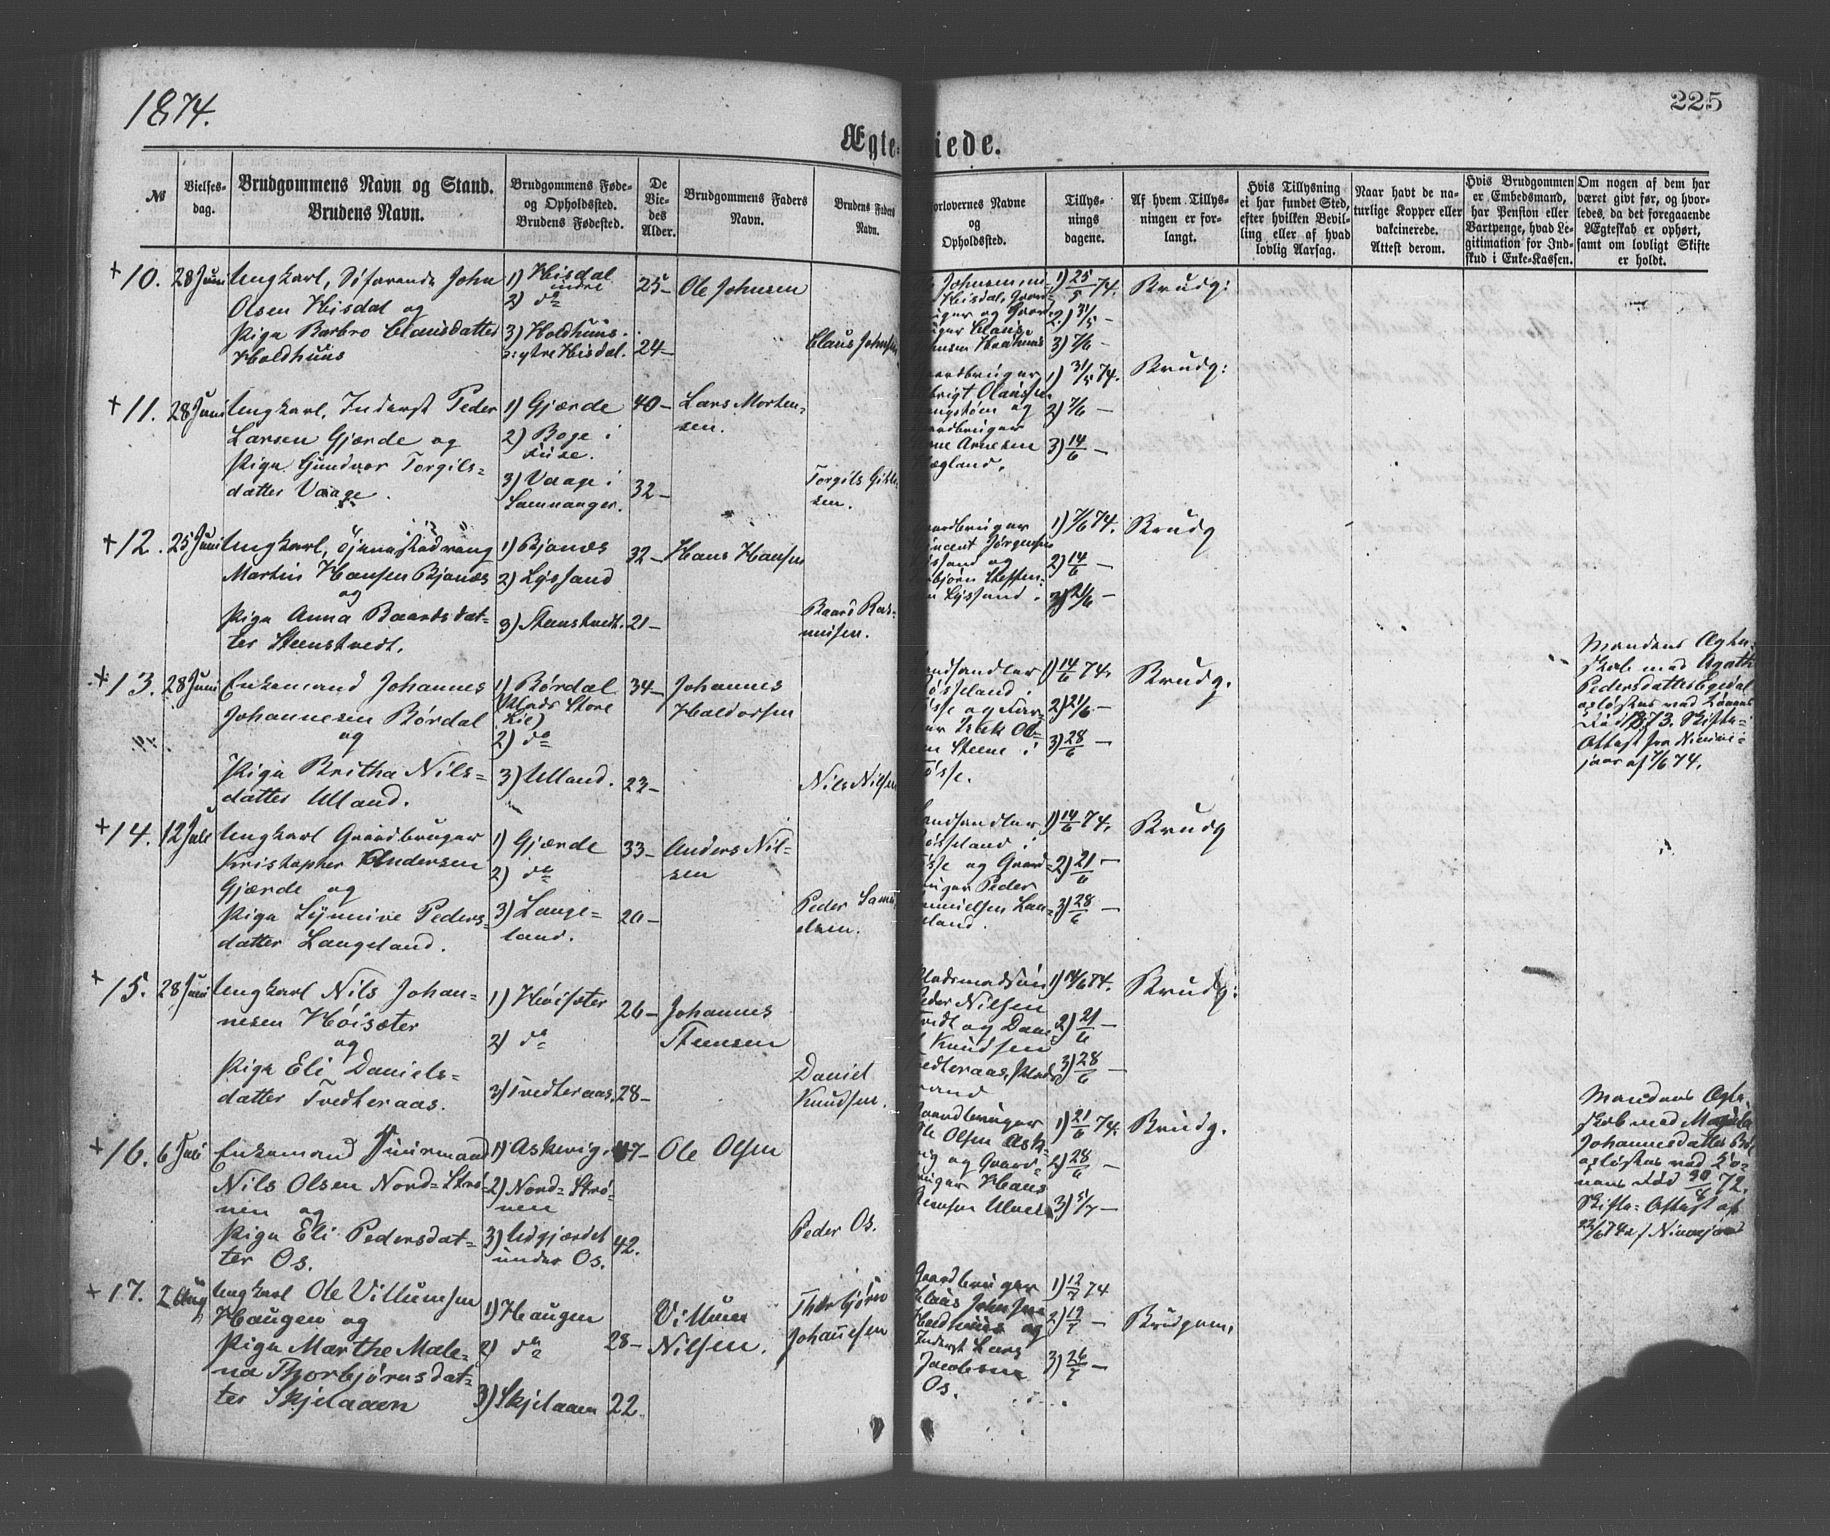 1874.
225
Ægte-
iede.
№
Vielses-
dag.
Brudgommens Navn og Stand.
Brudens Navn.
Brudgommens Føde-
og Opholdssted.
Brudens Fødested.
De
Vie-
des
Alder.
Brudgommens Faders
Navn.
Brudens Faders
Navn.
Forlovernes Navne
og
Opholdssted.
Tillys-
nings
dagene.
Af hvem Tillys-
ningen er for-
langt.
Hvis Tillysning
ei har fundet Sted,
efter hvilken Bevil-
ling eller af hvad
lovlig Aarsag.
Naar havt de na-
turlige Kopper eller
vakcinerede.
Attest derom.
Hvis Brudgommen
er Embedsmand,
har Pension eller
Vartpenge, hvad Le-
gitimation for Ind-
skud i Enke-Kassen.
Om nogen af dem har
været givt før, og hvor-
ledes, da det foregaaende
Ægteskab er ophørt,
samt om lovligt Skifte
er holdt.
+ 10. 28 Juni Ungkarl, Søfarende John
Olsen Hisdal og
Pige Barbro Clausdatter
Holdhuus
1) Hisdal
indre
2) do
3) Holdhuus.
ytre Hisdal.
25-
24-
Ole Johnsen
Claus Johnsen
Johnsen, in-
Hisdal, Gaard-
uger og Gaard-
uger Claus
nsen Holdhuus
1) 25/5 74.
2) 31/5 -
3) 7/6 -
Brudg:
+ 11. 28 Juni Ungkarl, Inderst Peder
Larsen Gjærde og
Pige Gundvor Torgils-
datter Vaage.
1) Gjærde
2) Boge i
Fuse.
3) Vaage i
Samnanger.
40-
32-
Lars Morten-
sen.
Torgils
sen.
aardbruger
og
aardbruger
Arnesen
1) 31/5 74.
2) 7/6 -
3) 14/6 -
Brudg:
+ 12. 25 Juni Ungkarl,
Martin Hansen Bjånes
og
Pige Anna Baardsdat-
ter Steenstvedt.
1) Bjånes
2) Lyssand
3) Steenstvedt.
32-
21-
Hans Hansen
Baard Ras-
musen.
aardbruger
incent Jørgensen
ssand og
bjørn Steffen-
n Lyssand.
1) 7/6 74.
2) 14/6 -
3) 21/6 -
Brudg
+ 13. 28 Juni Enkemand Johannes
Johannesen Børdal
og
Pige Britha Nils-
datter Ulland.
1) Børdal
(Plads Store
Lie)
2) do
3) Ulland.
34-
23-
Johannes
Haldorsen
Nils Nilsen
andhandler
øsseland i
sse og
Steene i
osse.
1) 14/6 74.
2) 21/6 -
3) 28/6 -
Brudg.
Mandens Ægte-
skab med Agathe
Pedersdatter Egedal
opløstes ved Konens
Død 1873. Skifte-
Attest fra
af 7/6 74.
+ 14. 12 Juli Ungkarl Gaardbruger
Kristopher Andersen
Gjærde og
Pige Synnive Peders-
datter Langeland.
1) Gjærde
2) do
3) Lange-
land.
33-
20-
Anders Nil-
sen
Peder Samu-
elsen.
andhandler
øsseland i
sse og Gaard-
uger Peder
amuelsen Lan-
eland.
1) 14/6 74.
2) 21/6 -
3) 28/6 -
Brudg
+ 15. 28 Juni Ungkarl Nils Johan-
nesen Høisæter
og
Pige Eli Daniels-
datter Tvedteraas.
1) Høisæter
2) do
3) Tvedteraas.
26-
28-
Johannes
Steensen
Daniel
Knudsen.
Pladsmand
Peder Nilsen
og Dani-
l Knudsen
vedteraas, Plads-
mand
1) 14/6 74.
2) 21/6 -
3) 28/6 -
Brudg:
+ 16. 6 Juli Enkemand
Nils Olsen Nord-Strø-
nen og
Pige Eli Pedersdat-
ter Os.
1) Askevig.
2) Nord-Strø-
nen
3) Udgjærdet
under Os.
47-
42.
Ole Olsen
Peder Os.
Gaardbruger
Ole Olsen Ask-
vig og Gaard-
bruger Hans
1) 21/6 74.
2) 28/6 -
3) 5/7 -
Brudg.
Mandens Ægte-
skab med
Johannesdatter
opløstes ved Ko-
nens Død 30/4 72.
Skifte-Attest af
+ 17. 2 Aug Ungkarl Ole Villumsen
Haugen og
Pige Marthe Male-
na Thorbjørnsdat-
ter Skjelaaen
1) Haugen
2) do
3) Skjelaaen
28-
22.
Villum
Nilsen.
Thorbjørn
Johannesen
Gaardbruger
Claus Johnsen
Holdhuus og
Inderst Lars
Jacobsen
Os.
1) 12/7 74
2) 19/7 -
3) 26/7 -
Brudgom.